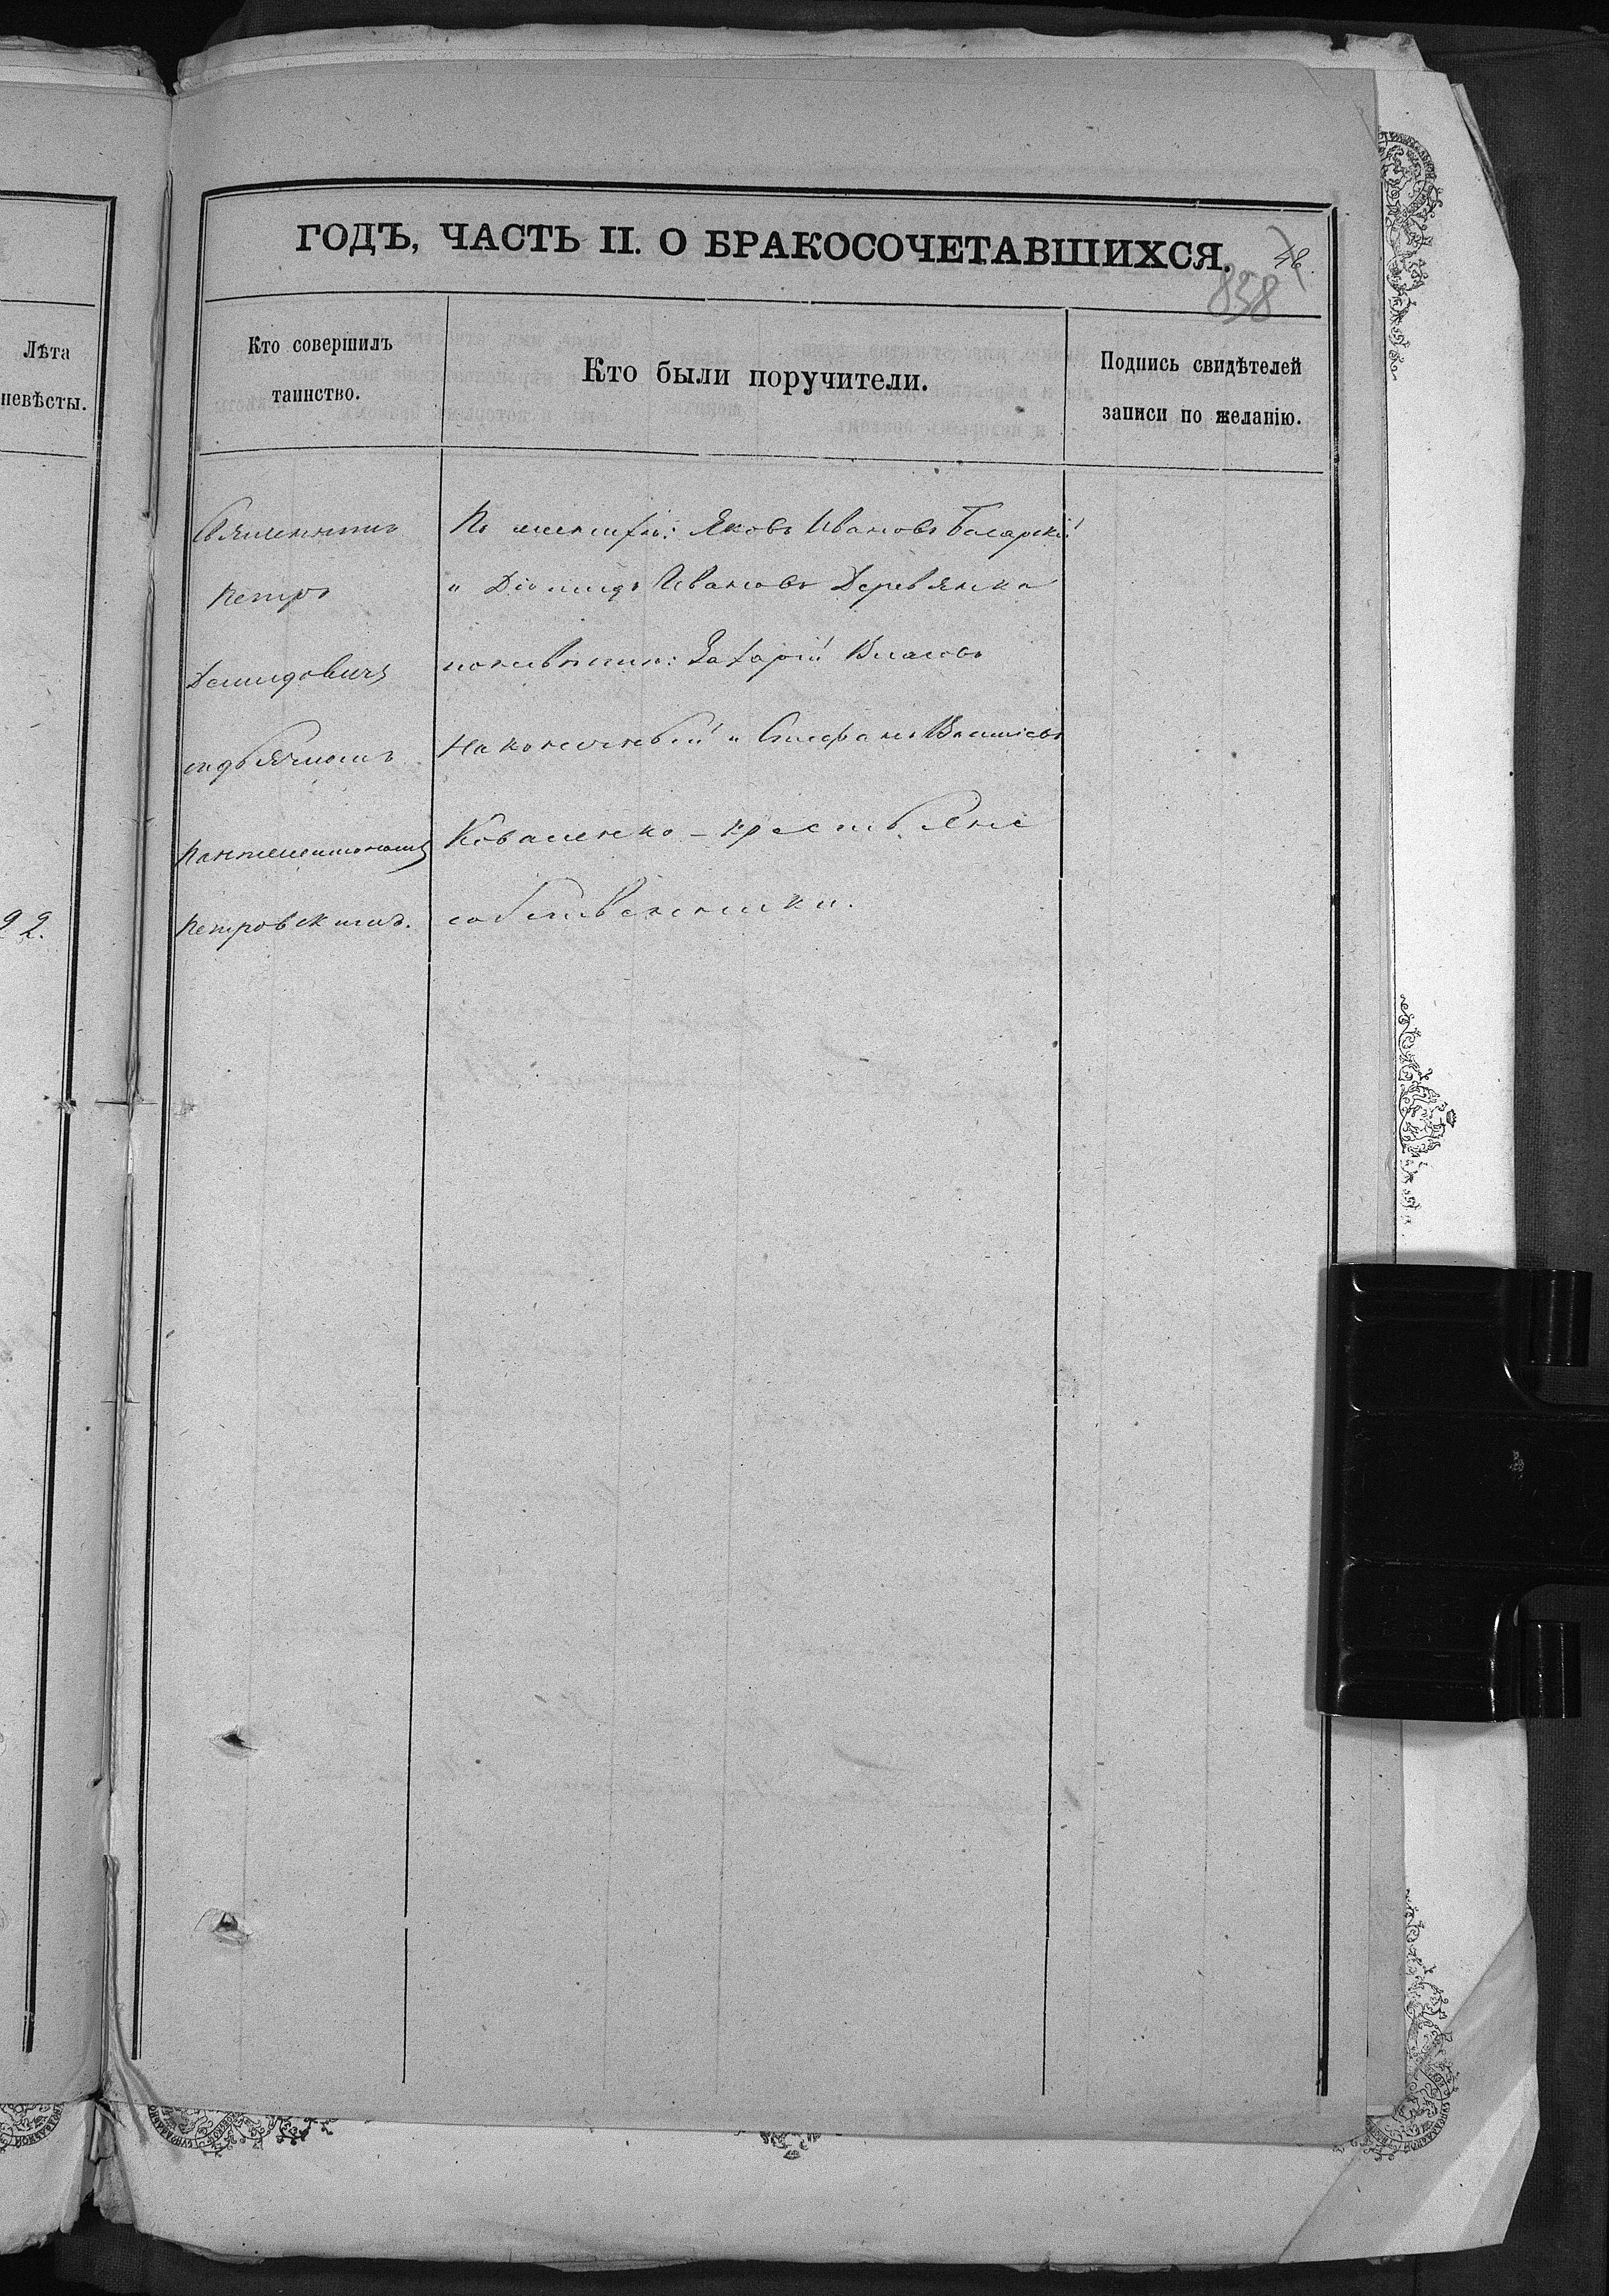 ГОДЪ, ЧАСТЬ II. О БРАКОСОЧЕТАВШИХСЯ.
46.
838
Лѣта
невѣсты.
22.
Кто совершилъ
таинство.
Кто были поручители.
Подпись свидѣтелей
записи по желанію.
Священникъ
Петръ
Демидовичъ
съ дьячкомъ
Пантелеимономъ
Петровскимъ.
По женихѣ: Яковъ Ивановъ
и Діомидъ Ивановъ Деревянка
по невѣстѣ: Захарій Власовъ
Наконечный и Стефанъ
Коваленко - крестьяне
собственники.